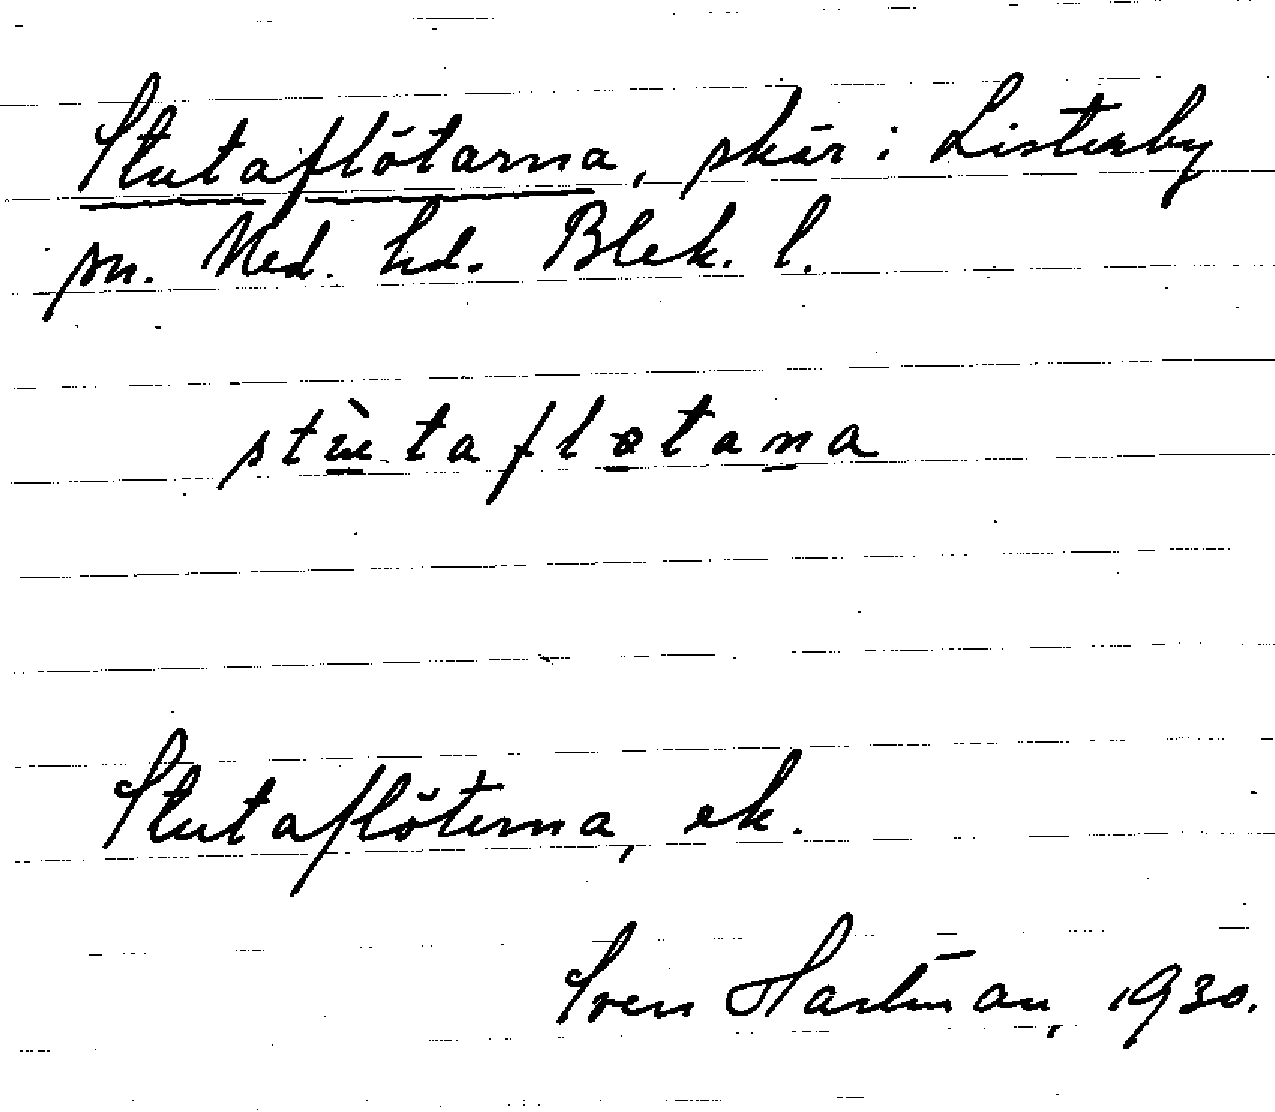 Stutaflötarna, skär i Listerby
sn. Med. hd. Blek. l.
stùtafløtana
Stutaflöterna, ek.
Sven Hartman, 1930.